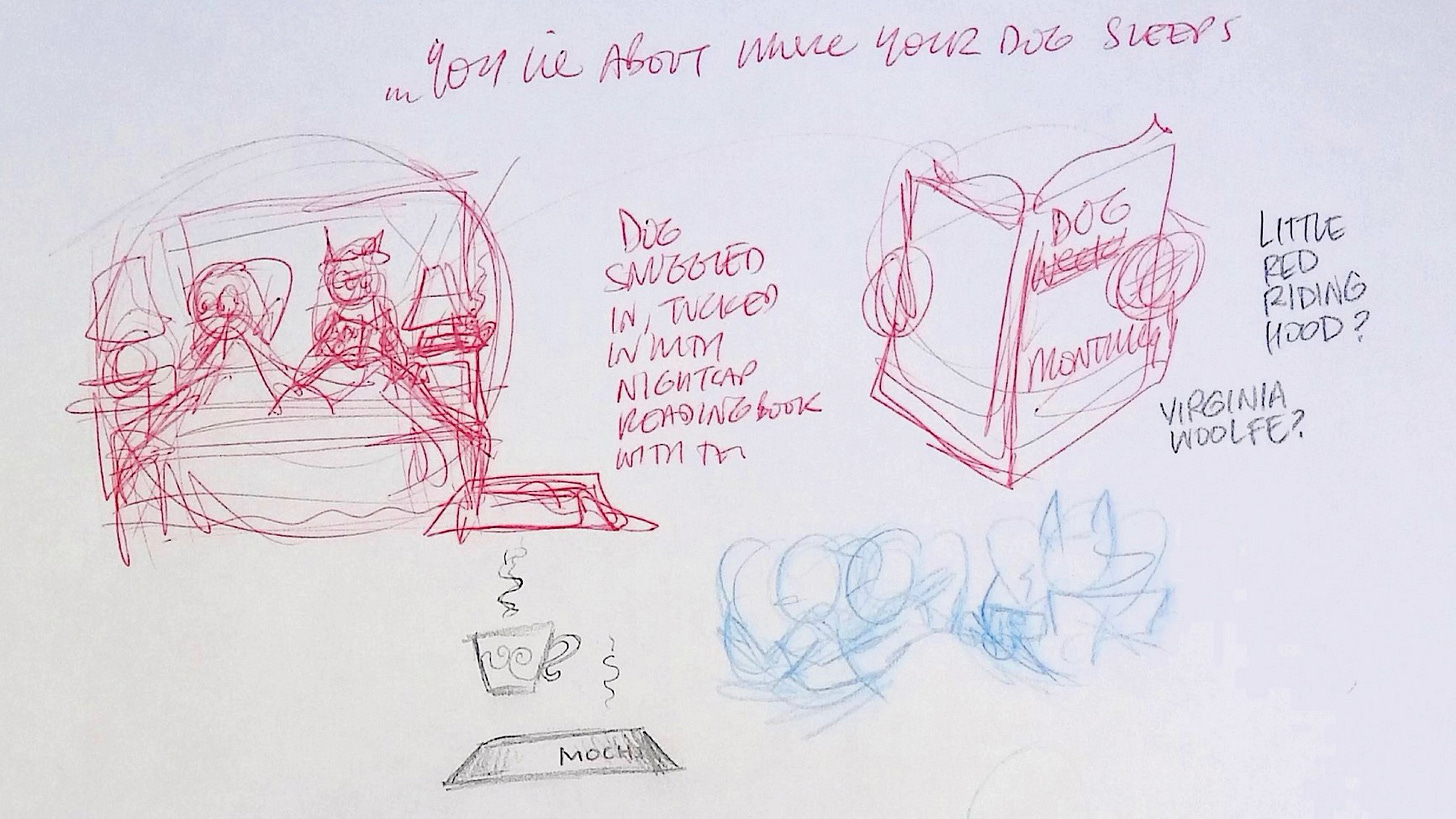 ... You lie ABOUT where YOUR DOG SLEEPS
DOG
SNUGGLED
IN, TUCKED
IN WITH
NIGHTCAP
READING BOOK
WITH
DOG
Weekly
MONTHLY
LITTLE
RED
RIDING
HOOD?
VIRGINIA
WOOLFE?
MOCH